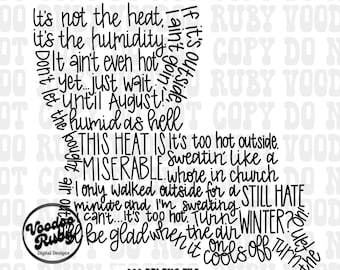 It's not the heat,
it's the humidity.
It ain't even hot
yet...just wait
until August!
humid as hell
If it's outside
I ain't goin'
Don't let the
bought air out
THIS HEAT IS
MISERABLE.
It's too hot outside.
Sweatin' like a
whore in church
I only walked outside for a
minute and I'm sweating
STILL HATE
WINTER?
I can't...it's too hot. Turn
the air on
I'll be glad when it cools off
Voodoo
Ruby
Digital Designs
VOODOO RUBY
DO NOT COPY